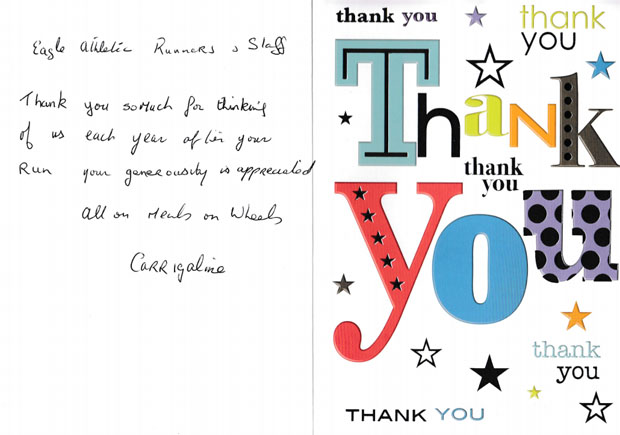 Eagle Athletic Runners & Staff
Thank you so Much for thinking
of us each year after your
Run your generousity is appreciated
All on Meals on Wheels
CARRIgaline
thank you
thank
you
Thank
thank
you
you
thank
you
THANK YOU